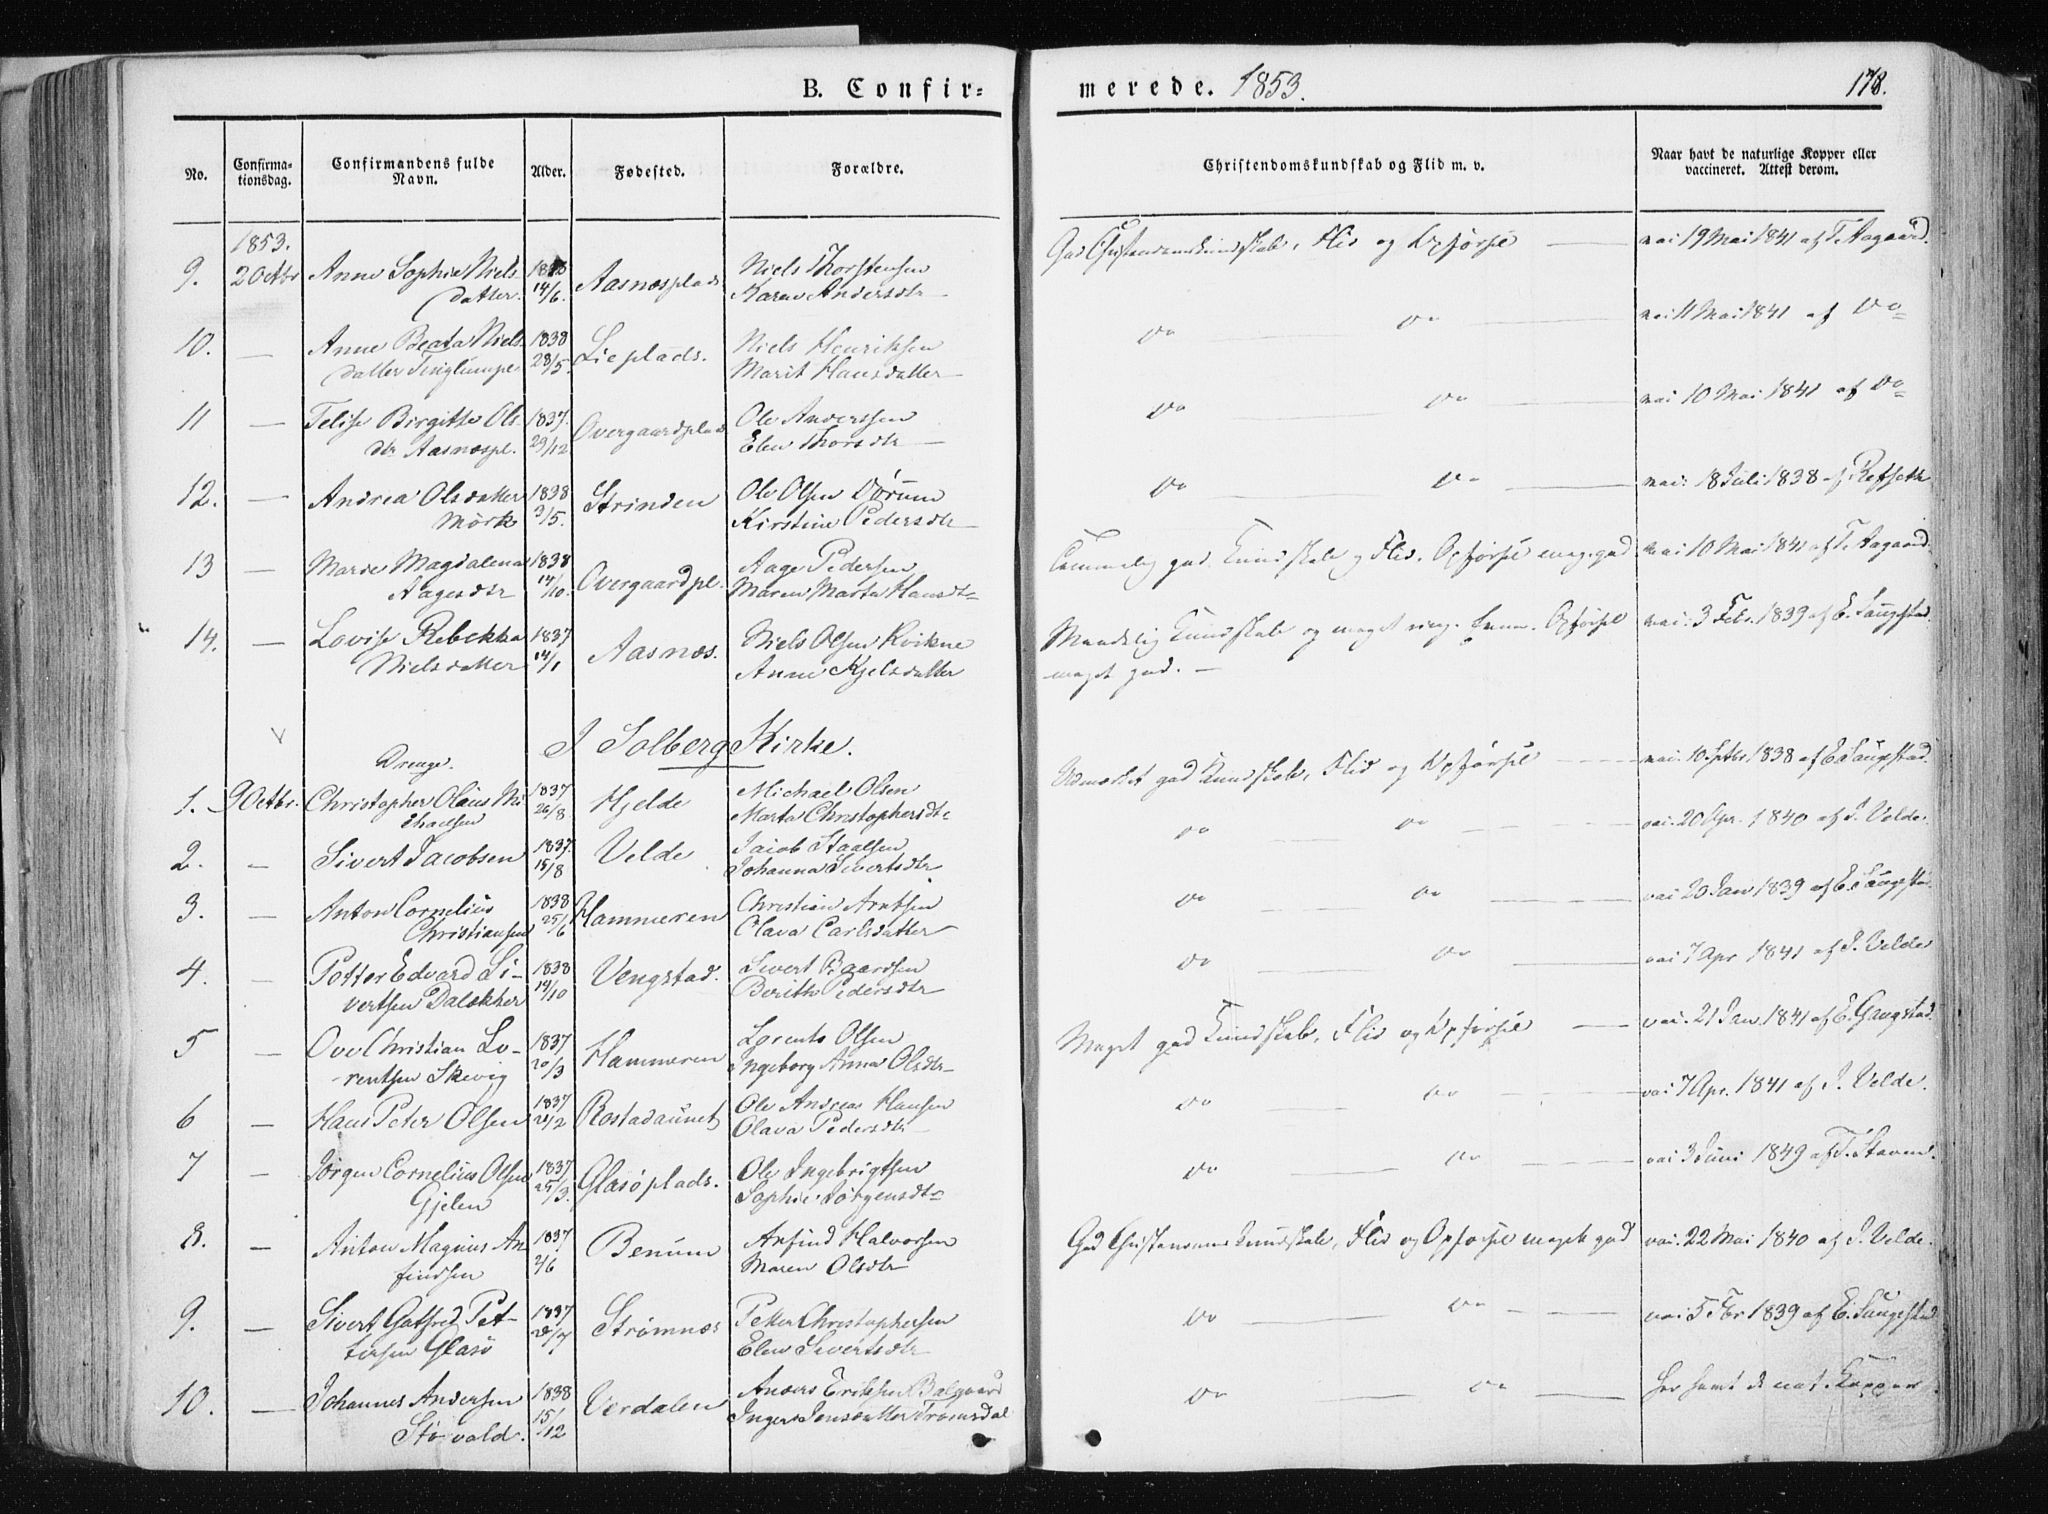 B. Confir-
merede. 1853.
178.
No.
Confirma-
tionsdag.
Confirmandens fulde
Navn.
Alder.
Fødested.
Forældre.
Christendomskundskab og Flid m. v.
Naar havt de naturlige Kopper eller
vaccineret. Attest derom.
1853.
9. 2 Octbr Anne Sophie Niels
datter. 14/6. Aasnæsplads Niels Thorstensen
Karen Andersdtr
God Christendomskundskab, Flid og Opførsel vai 19 Mai 1841 af T. Aagaard.
10. — Anne Beata Niels
datter Tinglumpl 1838 28/5. Lieplads. Niels Henriksen
Marit Hansdatter
do do vai 11 Mai 1841 af do
11 — Telise Birgitte Ols
dtr Aasnæspl. 1837. 29/12 Overgaardplads Ole Anderssen
Elen Thorsdtr
do do vai 10 Mai 1841 af do
12. — Andrea Olsdatter
Mörk 1838 3/5. Strinden Ole Olsen Dørum
Kirstine Pedersdtr
do do vai. 18 Juli 1838 af
13 — Maren Magdalena
Aagesdtr 1838 14/10. Overgaardpl. Aage Pedersen
Maren Marta Hansdtr
Temmelig god Kundskab og Flid. Opførsel meg. god vai 10 Mai 1841 af T. Aagaard.
14. — Lovise Rebekka
Nielsdatter 1837 14/1 Aasnæs. Niels Olsen Kvikne
Anne Kjelsdatter
Maadelig Kundskab og meget ring. Opførsel
meget god. — vai. 3 Febr. 1839 af E. Saugestad
I Solberg Kirke.
Drenge.
1. 9 Octbr. Christopher Olaus Mi
chaelsen 1837 26/8 Hjelde Michael Olsen
Marta Christophersdtr
Udmærket god Kundskab, Flid og Opførsel vai. 10 Septbr. 1838 af E. Saugestad.
2. — Sivert Jacobsen 1837. 15/8 Velde Jacob Staalsen
Johanna Sivertsdtr
do do vai. 20 Apr. 1840 af J. Velde.
3. — Anton Cornelius
Christiansen 1838 25/6 Hammeren Christian Arntsen
Olava Carlsdatter
do do vai 20 Jan 1839 af E. Saugestad
4. — Petter Edvard Si-
vertsen Dalækher 1838 19/10 Vengstad. Sivert Baardsen
Berith Pedersdtr
do do vai 7 Apr 1841 af J. Velde
5 — Ove Christian Lo-
rentsen Skevig 1837 20/3 Hammeren Lorents Olsen
Ingeborg Anna Olsdtr
Meget god Kundskab, Flid og Opførsel vai. 21 Jan. 1841 af E. Gaugstad.
6 — Hans Peter Olsen 1837 21/2 Rostadaunet Ole Andreas Hansen
Olava Pedersdtr
do do vai 7 Apr. 1841 af J. Velde.
7 — Jørgen Cornelius Olsen
Gjelen 1837 25/3. Glasøplads. Ole Ingebrigtsen
Sophie Jørgensdtr
do do vai 3 Juni 1849 af T. Staven.
8. — Anton Magnus An
findsen 1837 2/6 Benum Anfind Halvorsen
Maren Olsdtr
God Christendoms Kundskab, Flid og Opførsel meget god vai. 22 Mai 1840 af J. Velde.
9. — Sivert Gotfred Pet-
tersen Glasö 1837 28/7 Strømnæs Petter Christophersen
Elen Sivertsdtr
do do vai 5 Fbr 1839 af E. Saugestad
10. — Johannes Andersen
Stövald. 1838 15/12 Verdalen Anders Eriksen Balgaard
Inger Jonsdatter Tromsdal
do do Har havt de nat. Kopper.